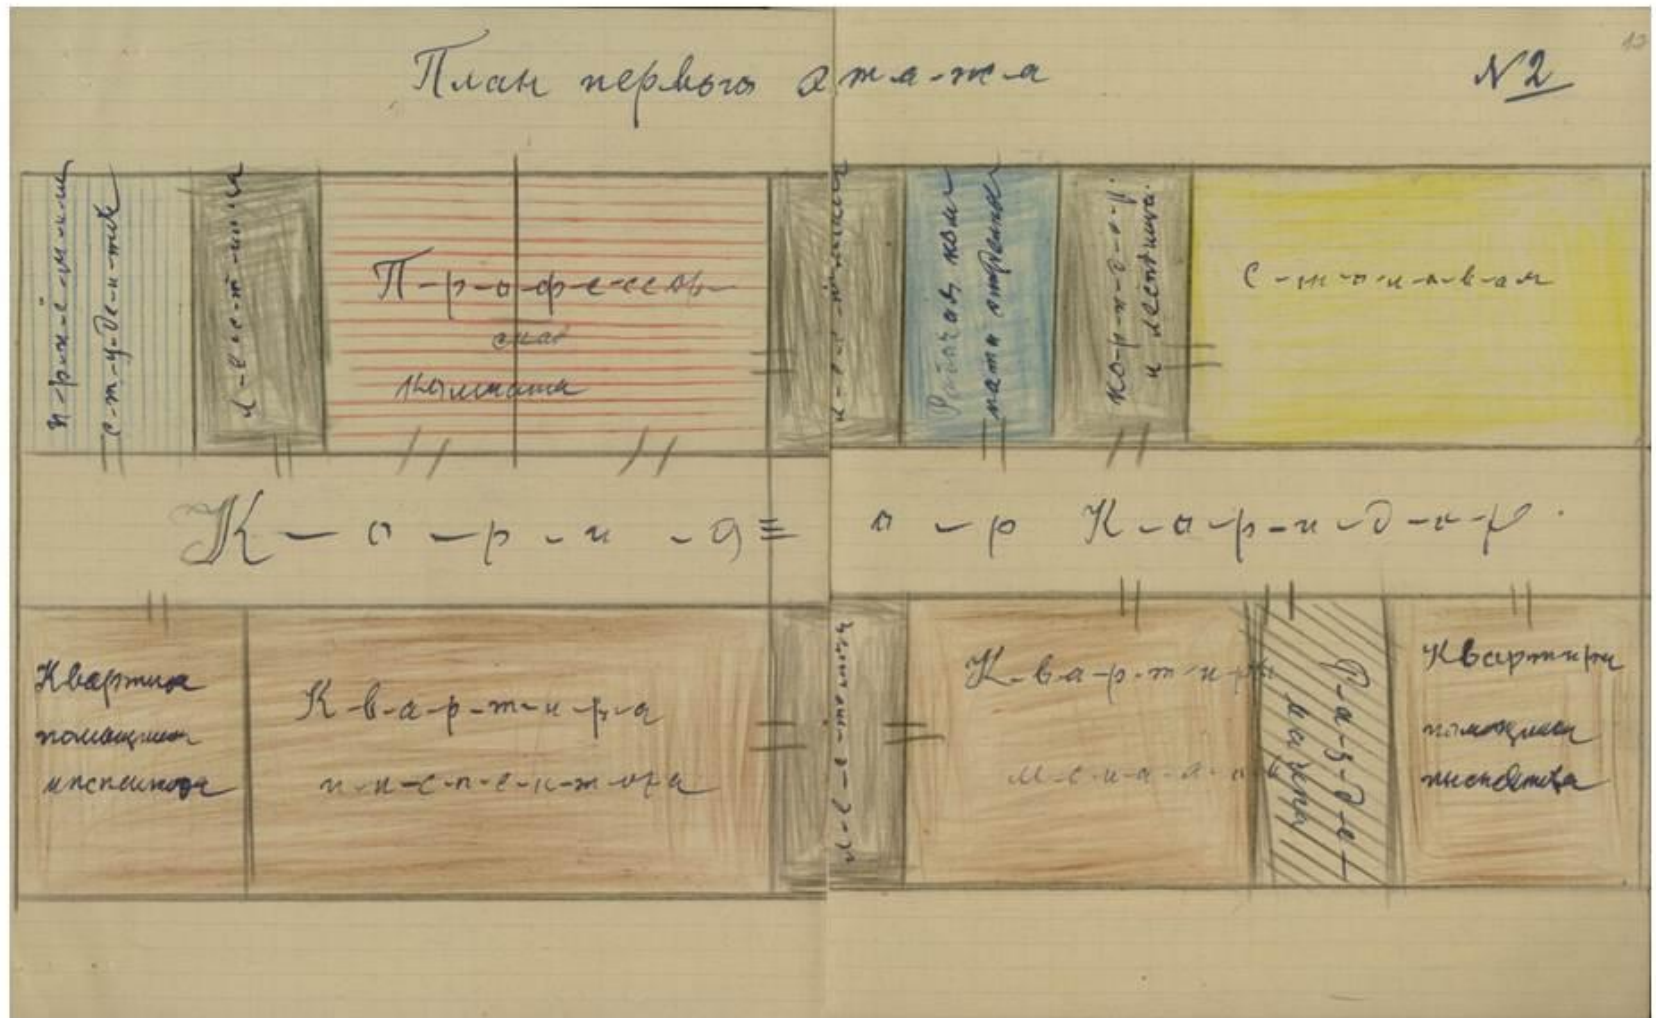 План первого э-т-а-ж-а
№ 2
13
п-р-и-е-м-н-а-я
с-т-у-д-е-н-т-о-к
л-е-с-т-н-и-ц-а
П-р-о-ф-е-с-с-о-р-
ская
комната
л-е-с-т-н-и-ц-а
Рабочая ком
ната
к-о-р-и-д-о-р
и лестница
с-т-о-л-о-в-а-я
К-о-р-и-д-о-р К-о-р-и-д-о-р.
Квартира
помощник
инспектора
К-в-а-р-т-и-р-а
и-н-с-п-е-к-т-о-р-а
л-е-с-т-н-и-ц-а
К-в-а-р-т-и-р-а
Р-а-з-д-е-
вальня
Квартира
помощник
инспектора